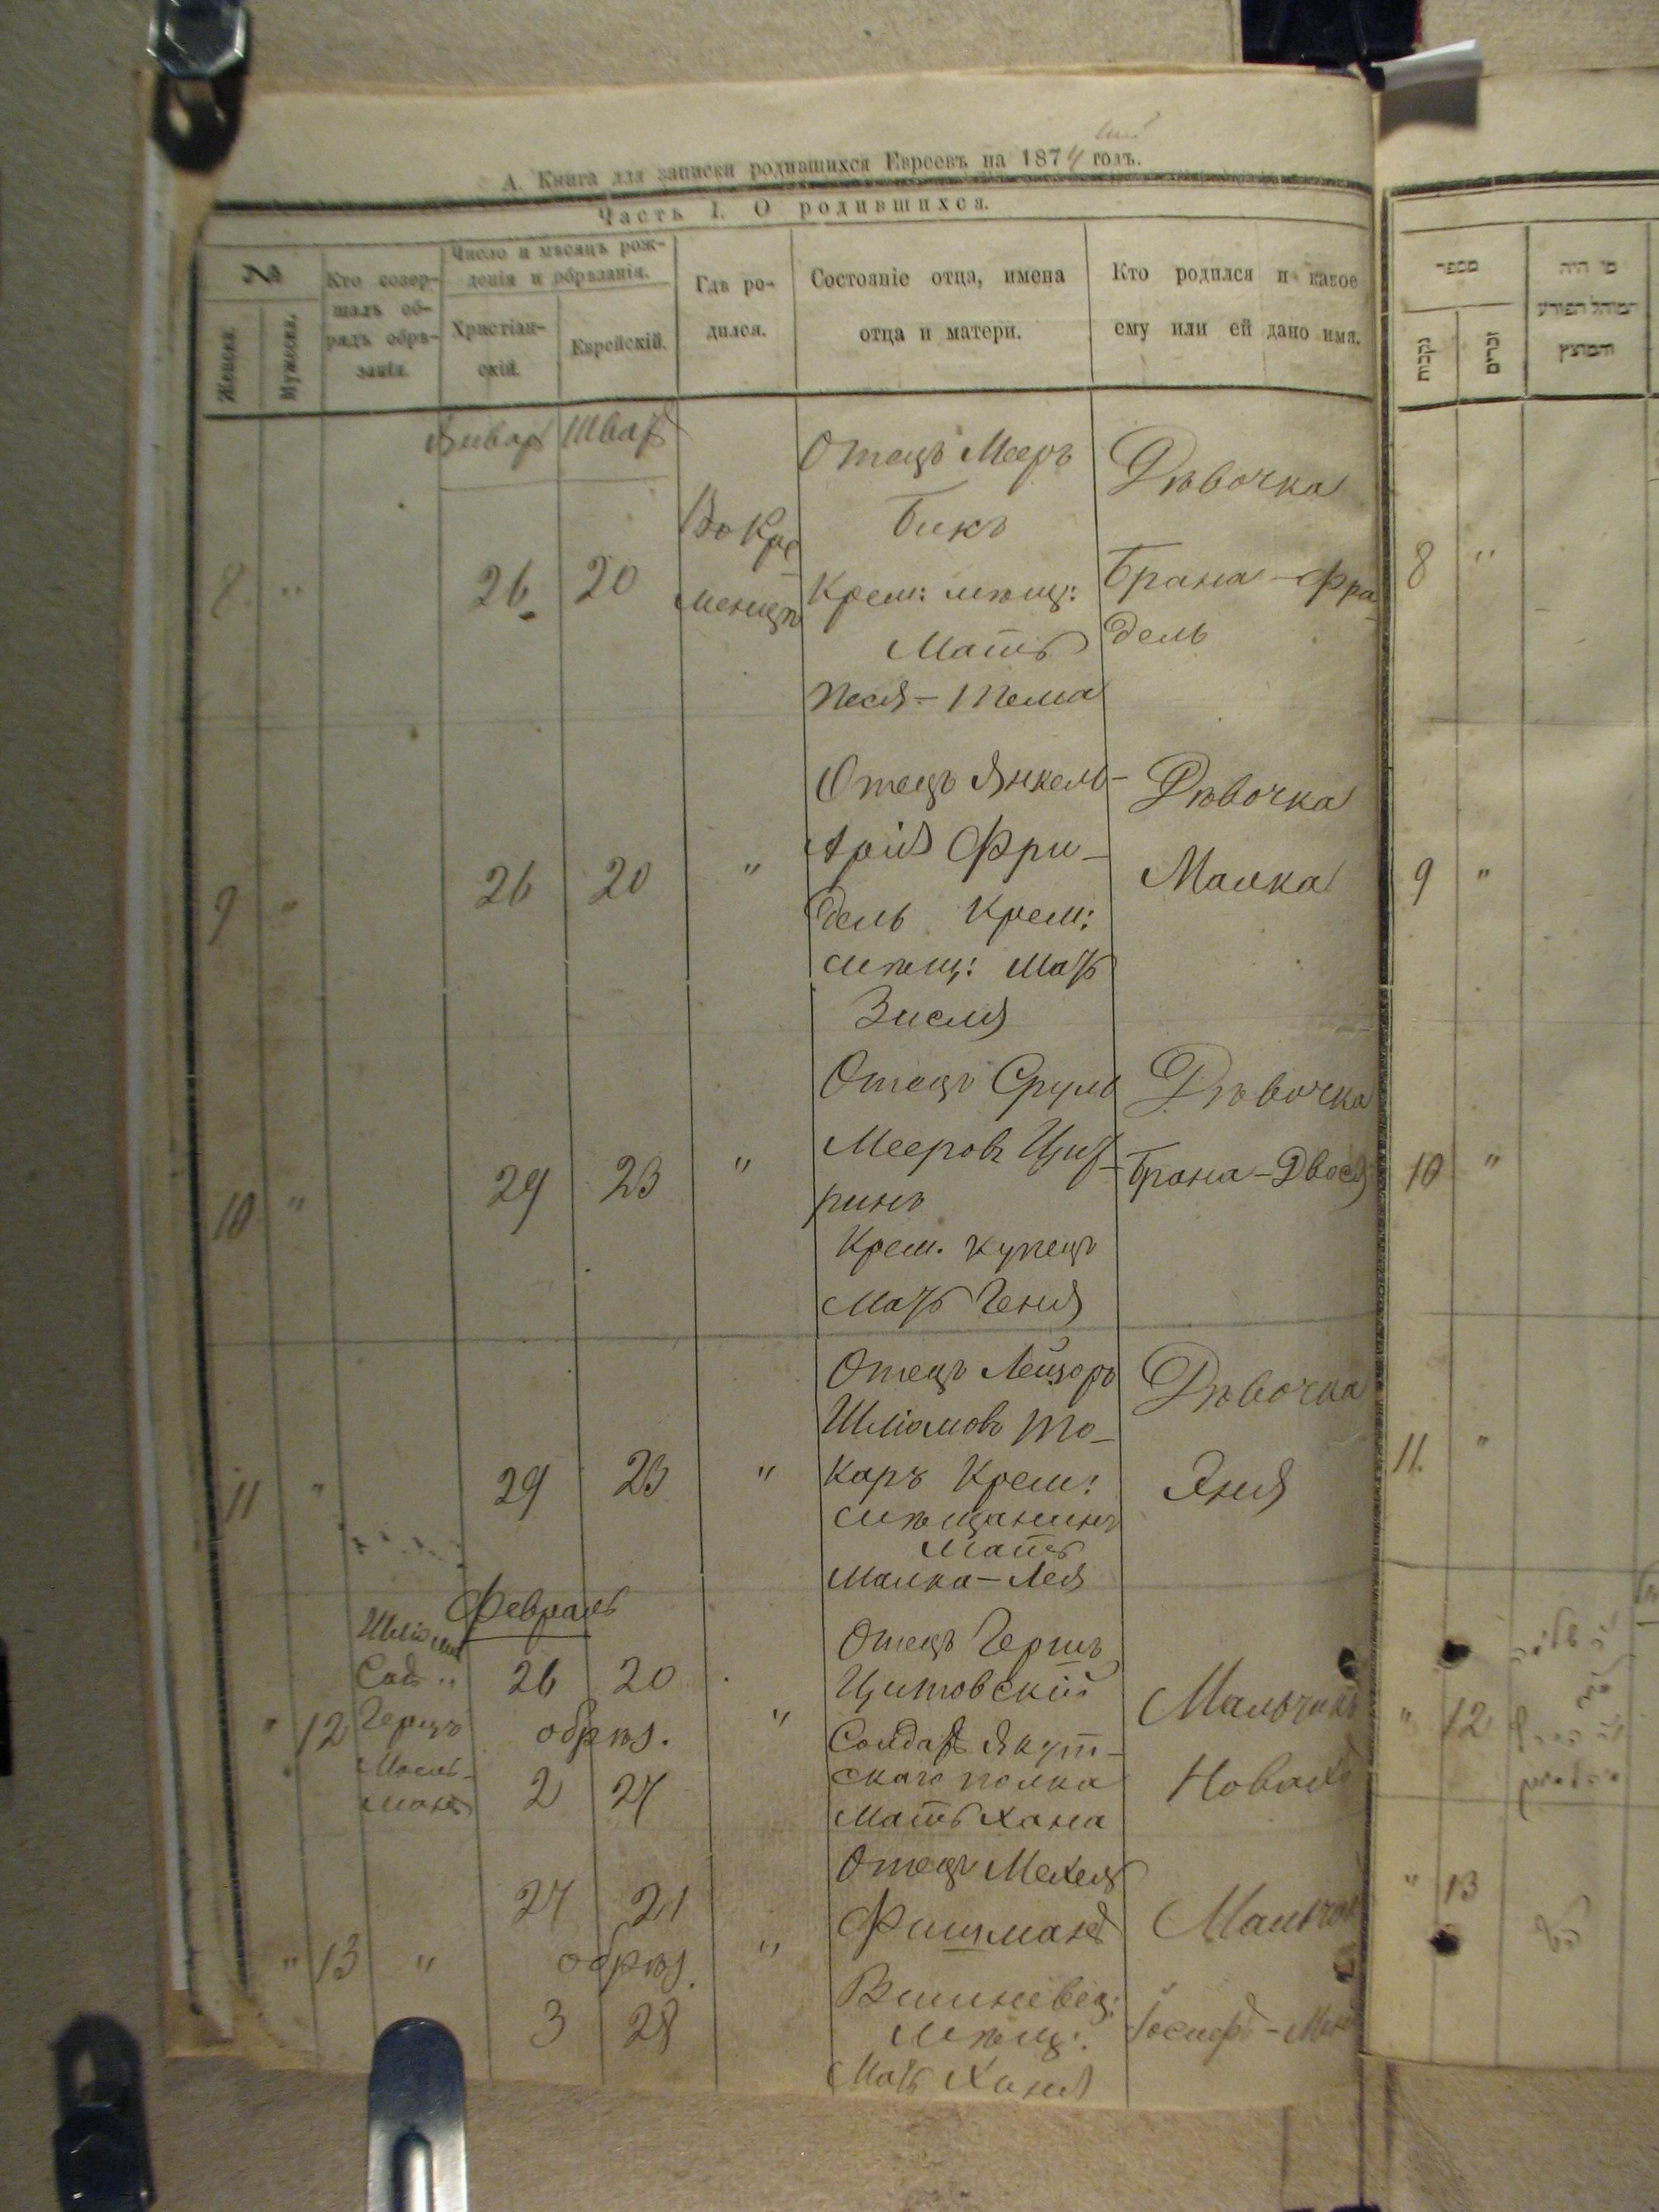 А. Книга для записки родившихся Евреевъ на 1874 годъ.
Часть I. О родившихся.
№
Женска
Мужеска,
Кто совер-
шалъ об-
рядъ обрѣ-
занія.
Число и мѣсяцъ рож-
денія и обрѣзанія.
Христіан-
скій.
Еврейскій.
Гдѣ ро-
дился.
Состояніе отца, имена
отца и матери.
Кто родился и какое
ему или ей дано имя.
Январ Шват
8 " 26 20
Во Кре
менцѣ
Отецъ Мееръ
Бикъ
Крем: мѣщ:
Мать
Песя-
Дѣвочка
Брана-Фра
дель
9 " 26 20 "
Отецъ Янкель-
Арія Фри-
дель Крем:
мѣщ: Мать
Зисля
Дѣвочка
Малка
10 " 29 23 "
Отецъ Сруль
Мееровъ Цит-
ринъ
Крем. купецъ
Мать Геня
Дѣвочка
Брана-Двося
11 " 29 23 "
Отецъ Лейзоръ
Шліомовъ То-
каръ Крем:
мѣщанинъ
Мать
Малка-Лея
Дѣвочка
Февраль
" 12
Шліома
Герцъ
26 20
обрѣз.
2 27
"
Отецъ Гершъ
Цитовскій
Солдат Якут-
скаго полка
Мать Хана
Мальчикъ
" 13 "
27 21
обрѣз.
3 28
"
Отецъ Мехель
Фишман
Вишневец:
мѣщ:
Мать Ханя
מספר
נקבות
זכרים
מי היה
המוהל הפורע
והמוצץ
8 "
9 "
10 "
11. "
" 12
" 13